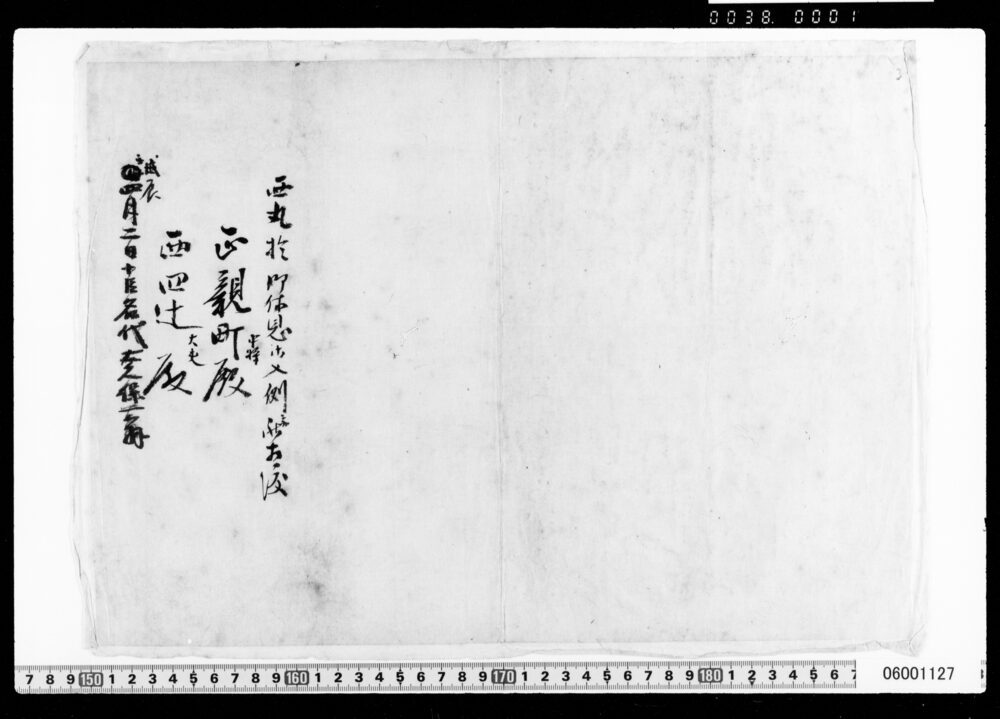 0038. 0001
3
西丸於御休息御入側
正親町中将殿
西四辻大夫殿
戊辰
四月二日
名代大久保一翁
7 8 9 150 1 2 3 4 5 6 7 8 9 160 1 2 3 4 5 6 7 8 9 170 1 2 3 4 5 6 7 8 9 180 1 2 3 4 5 6 7
06001127